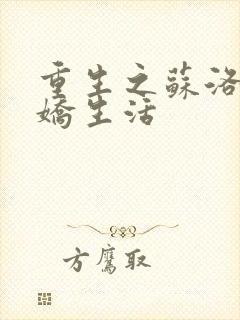 重生之蘇洛
嬌生活
方鷹取